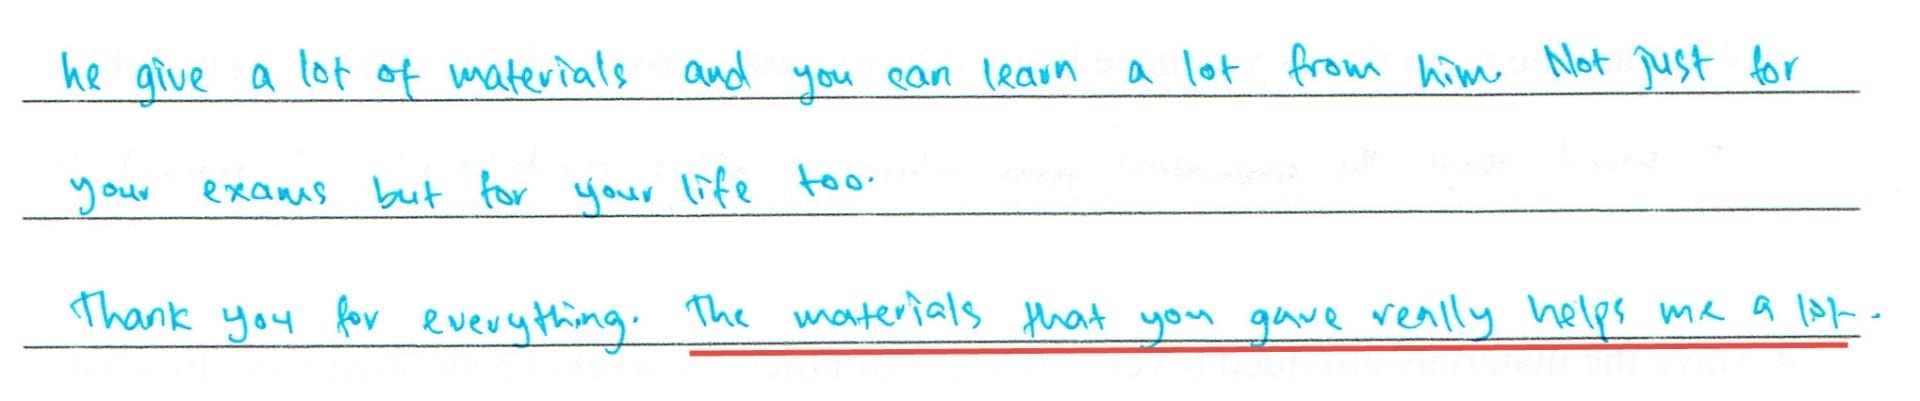 he give a lot of materials and you can learn a lot from him. Not just for
your exams but for your life too.
Thank you for everything. The materials that you gave really helps me a lot.